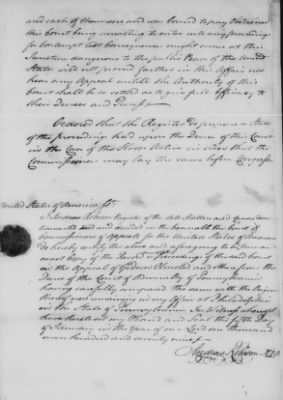 and each of them were and was bound to pay Obedience
this Court being unwilling to enter into any proceeding
for Contempt lest Consequences might ensue at this
Juncture dangerous to the public Peace of the United
States will not proceed farther in this Affair nor
hear any Appeal untill the Authority of this
Court shall be so settled as to give full Efficacy to
their Decrees and Process
Ordered that the Register do prepare a State
of the proceedings had upon the Decree of this Court
in the Case of the Sloop Active in order that the
Commissioners may lay the same before Congress
United States of America ss.
I Andrew Robeson Register of the
and decided in the honorable the Court of
Commissioners of Appeals for the United States of America
do hereby certify the above and aforegoing to be a true and
exact Copy of the Record & Proceedings of the said Court
in the Appeal of Gideon Olmsted and others from the
Decree of the Court of Admiralty of Pennsylvania
having carefully compared the same with the Original
thereof now remaining in my Office at Philadelphia
in the State of Pennsylvania In Witness whereof I
have hereto set my Hand and Seal the fifth Day
of January in the Year of our Lord one thousand
seven hundred and seventy nine
Andrew Robeson Regr